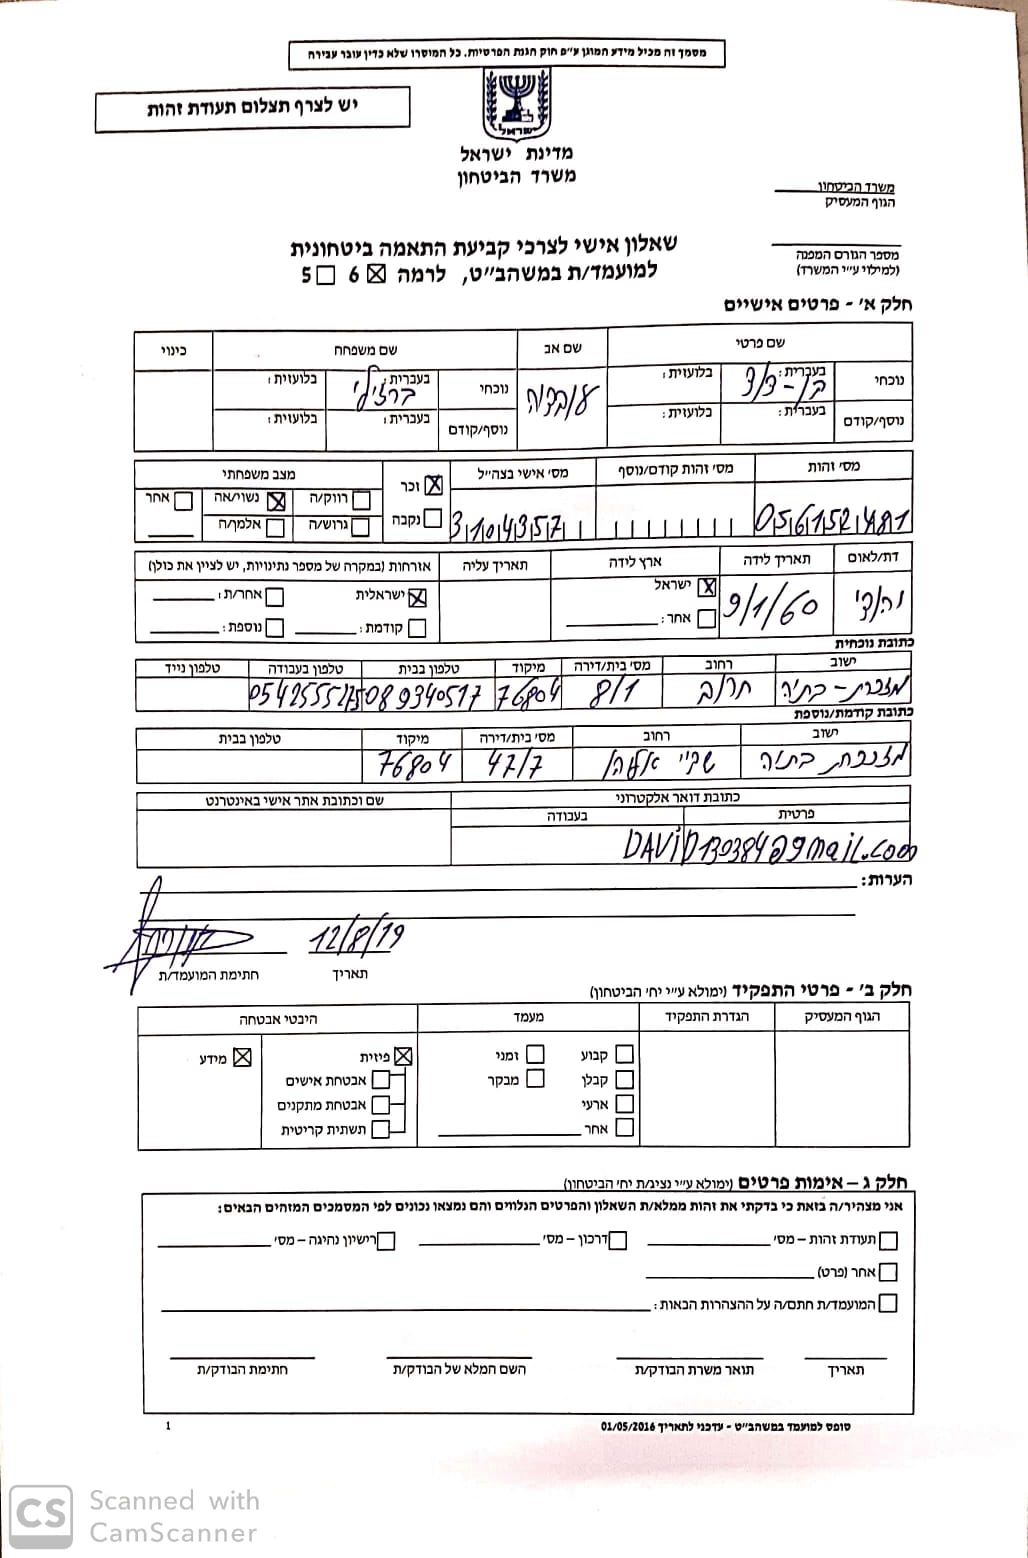 מסמך זה מכיל מידע המוגן ע״פ חוק הגנת הפרטיות. כל המוסרו שלא כדין עובר עבירה
יש לצרף תצלום תעודת זהות
ישראל
מדינת ישראל
משרד הביטחון
משרד הביטחון
הגוף המעסיק
מספר הגורם המפנה
(למילוי ע״י המשרד)
שאלון אישי לצרכי קביעת התאמה ביטחונית
למועמד/ת במשהב״ט, לרמה 6 5
חלק א׳ - פרטים אישיים
שם פרטי שם אב שם משפחה כינוי
נוכחי בעברית: בן-ציון בלועזית: עובדיה נוכחי בעברית: ברזילי בלועזית:
נוסף/קודם בעברית: בלועזית: נוסף/קודם בעברית: בלועזית:
מס׳ זהות מס׳ זהות קודם/נוסף מס׳ אישי בצה״ל זכר מצב משפחתי
רווק/ה נשוי/אה אחר
056152481 3104357 נקבה גרוש/ה אלמן/ה
דת/לאום תאריך לידה ארץ לידה תאריך עליה אזרחות (במקרה של מספר נתינויות, יש לציין את כולן)
יהודי 9/1/60 ישראל ישראלית אחר/ת:
אחר: קודמת: נוספת:
כתובת נוכחית
ישוב רחוב מס׳ בית/דירה מיקוד טלפון בבית טלפון בעבודה טלפון נייד
מזכרת-בתיה חרוב 8/1 76804 089340517 0542555275
כתובת קודמת/נוספת
ישוב רחוב מס׳ בית/דירה מיקוד טלפון בבית
מזכרת בתיה 47/7 76804
כתובת דואר אלקטרוני שם וכתובת אתר אישי באינטרנט
פרטית בעבודה
DAViD130384@gmail.com
הערות:
12/8/19
תאריך חתימת המועמד/ת
חלק ב׳ - פרטי התפקיד (ימולא ע״י יח׳ הביטחון)
הגוף המעסיק הגדרת התפקיד מעמד היבטי אבטחה
קבוע זמני פיזית מידע
קבלן מבקר אבטחת אישים
ארעי אבטחת מתקנים
אחר תשתית קריטית
חלק ג – אימות פרטים (ימולא ע״י נציג/ת יח׳ הביטחון)
אני מצהיר/ה בזאת כי בדקתי את זהות ממלא/ת השאלון והפרטים הנלווים והם נמצאו נכונים לפי המסמכים המזהים הבאים:
תעודת זהות – מס׳ דרכון – מס׳ רישיון נהיגה – מס׳
אחר (פרט)
המועמד/ת חתם/ה על ההצהרות הבאות:
תאריך תואר משרת הבודק/ת השם המלא של הבודק/ת חתימת הבודק/ת
טופס למועמד במשהב״ט - עדכני לתאריך 01/05/2016 1
CS Scanned with
CamScanner